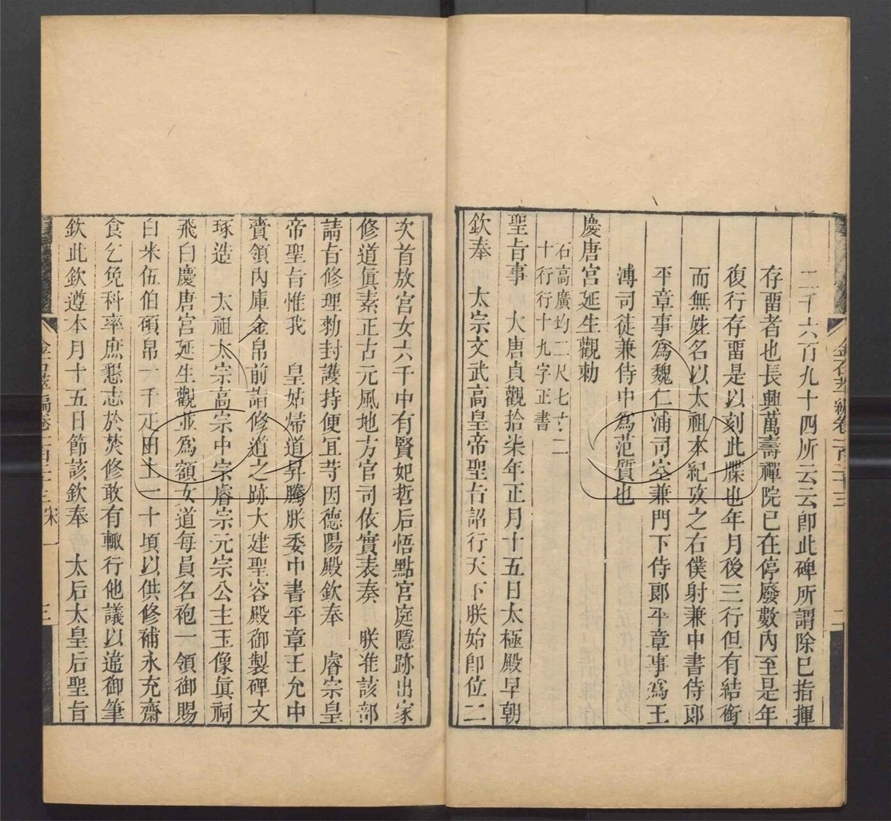 二千六百九十四所云云卽此碑所謂除已指揮
存畱者也長興萬壽禪院已在停廢數內至是年
復行存畱是以刻此牒也年月後三行但有結銜
而無姓名以太祖本紀攷之右僕射兼中書侍郎
平章事爲魏仁浦司空兼門下侍郎平章事爲王
溥司徒兼侍中爲范質也
慶唐宮延生觀勅
石高廣均二尺七寸二
十行行十九字正書
聖旨事 大唐貞觀拾柒年正月十五日太極殿早朝
欽奉 太宗文武高皇帝聖旨詔行天下朕始卽位二
金石萃編卷一百二十三 二
次首放宮女六千中有賢妃哲后悟點宮庭隱跡出家
修道眞素正古元風地方官司依實表奏 朕准該部
請旨修理勅封護持便宜等因德陽殿欽奉 睿宗皇
帝聖旨惟我 皇姑帰道昇騰朕委中書平章王允中
賫領內庫金帛前詣修道之跡大建聖容殿御製碑文
琢造 太祖太宗高宗中宗睿宗元宗公主玉像眞祠
飛白慶唐宮延生觀並爲額女道每員名袍一領御賜
白米伍伯碩帛一千疋田土二十頃以供修補永充齋
食乞免科率庶懇志於焚修敢有輙行他議以違御筆
欽此欽遵本月十五日節該欽奉 太后太皇后聖旨
金石萃編卷一百二十三 宋一 三